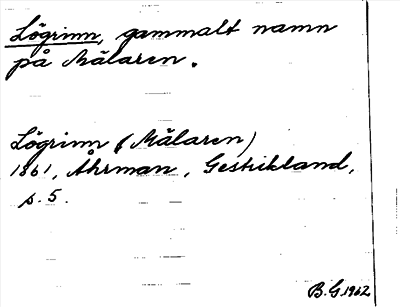 Lögrinn, gammalt namn
på Mälaren.
Lögrinn (Mälaren)
1861, Åhrman, Gestrikland,
p. 5.
B.G. 1962